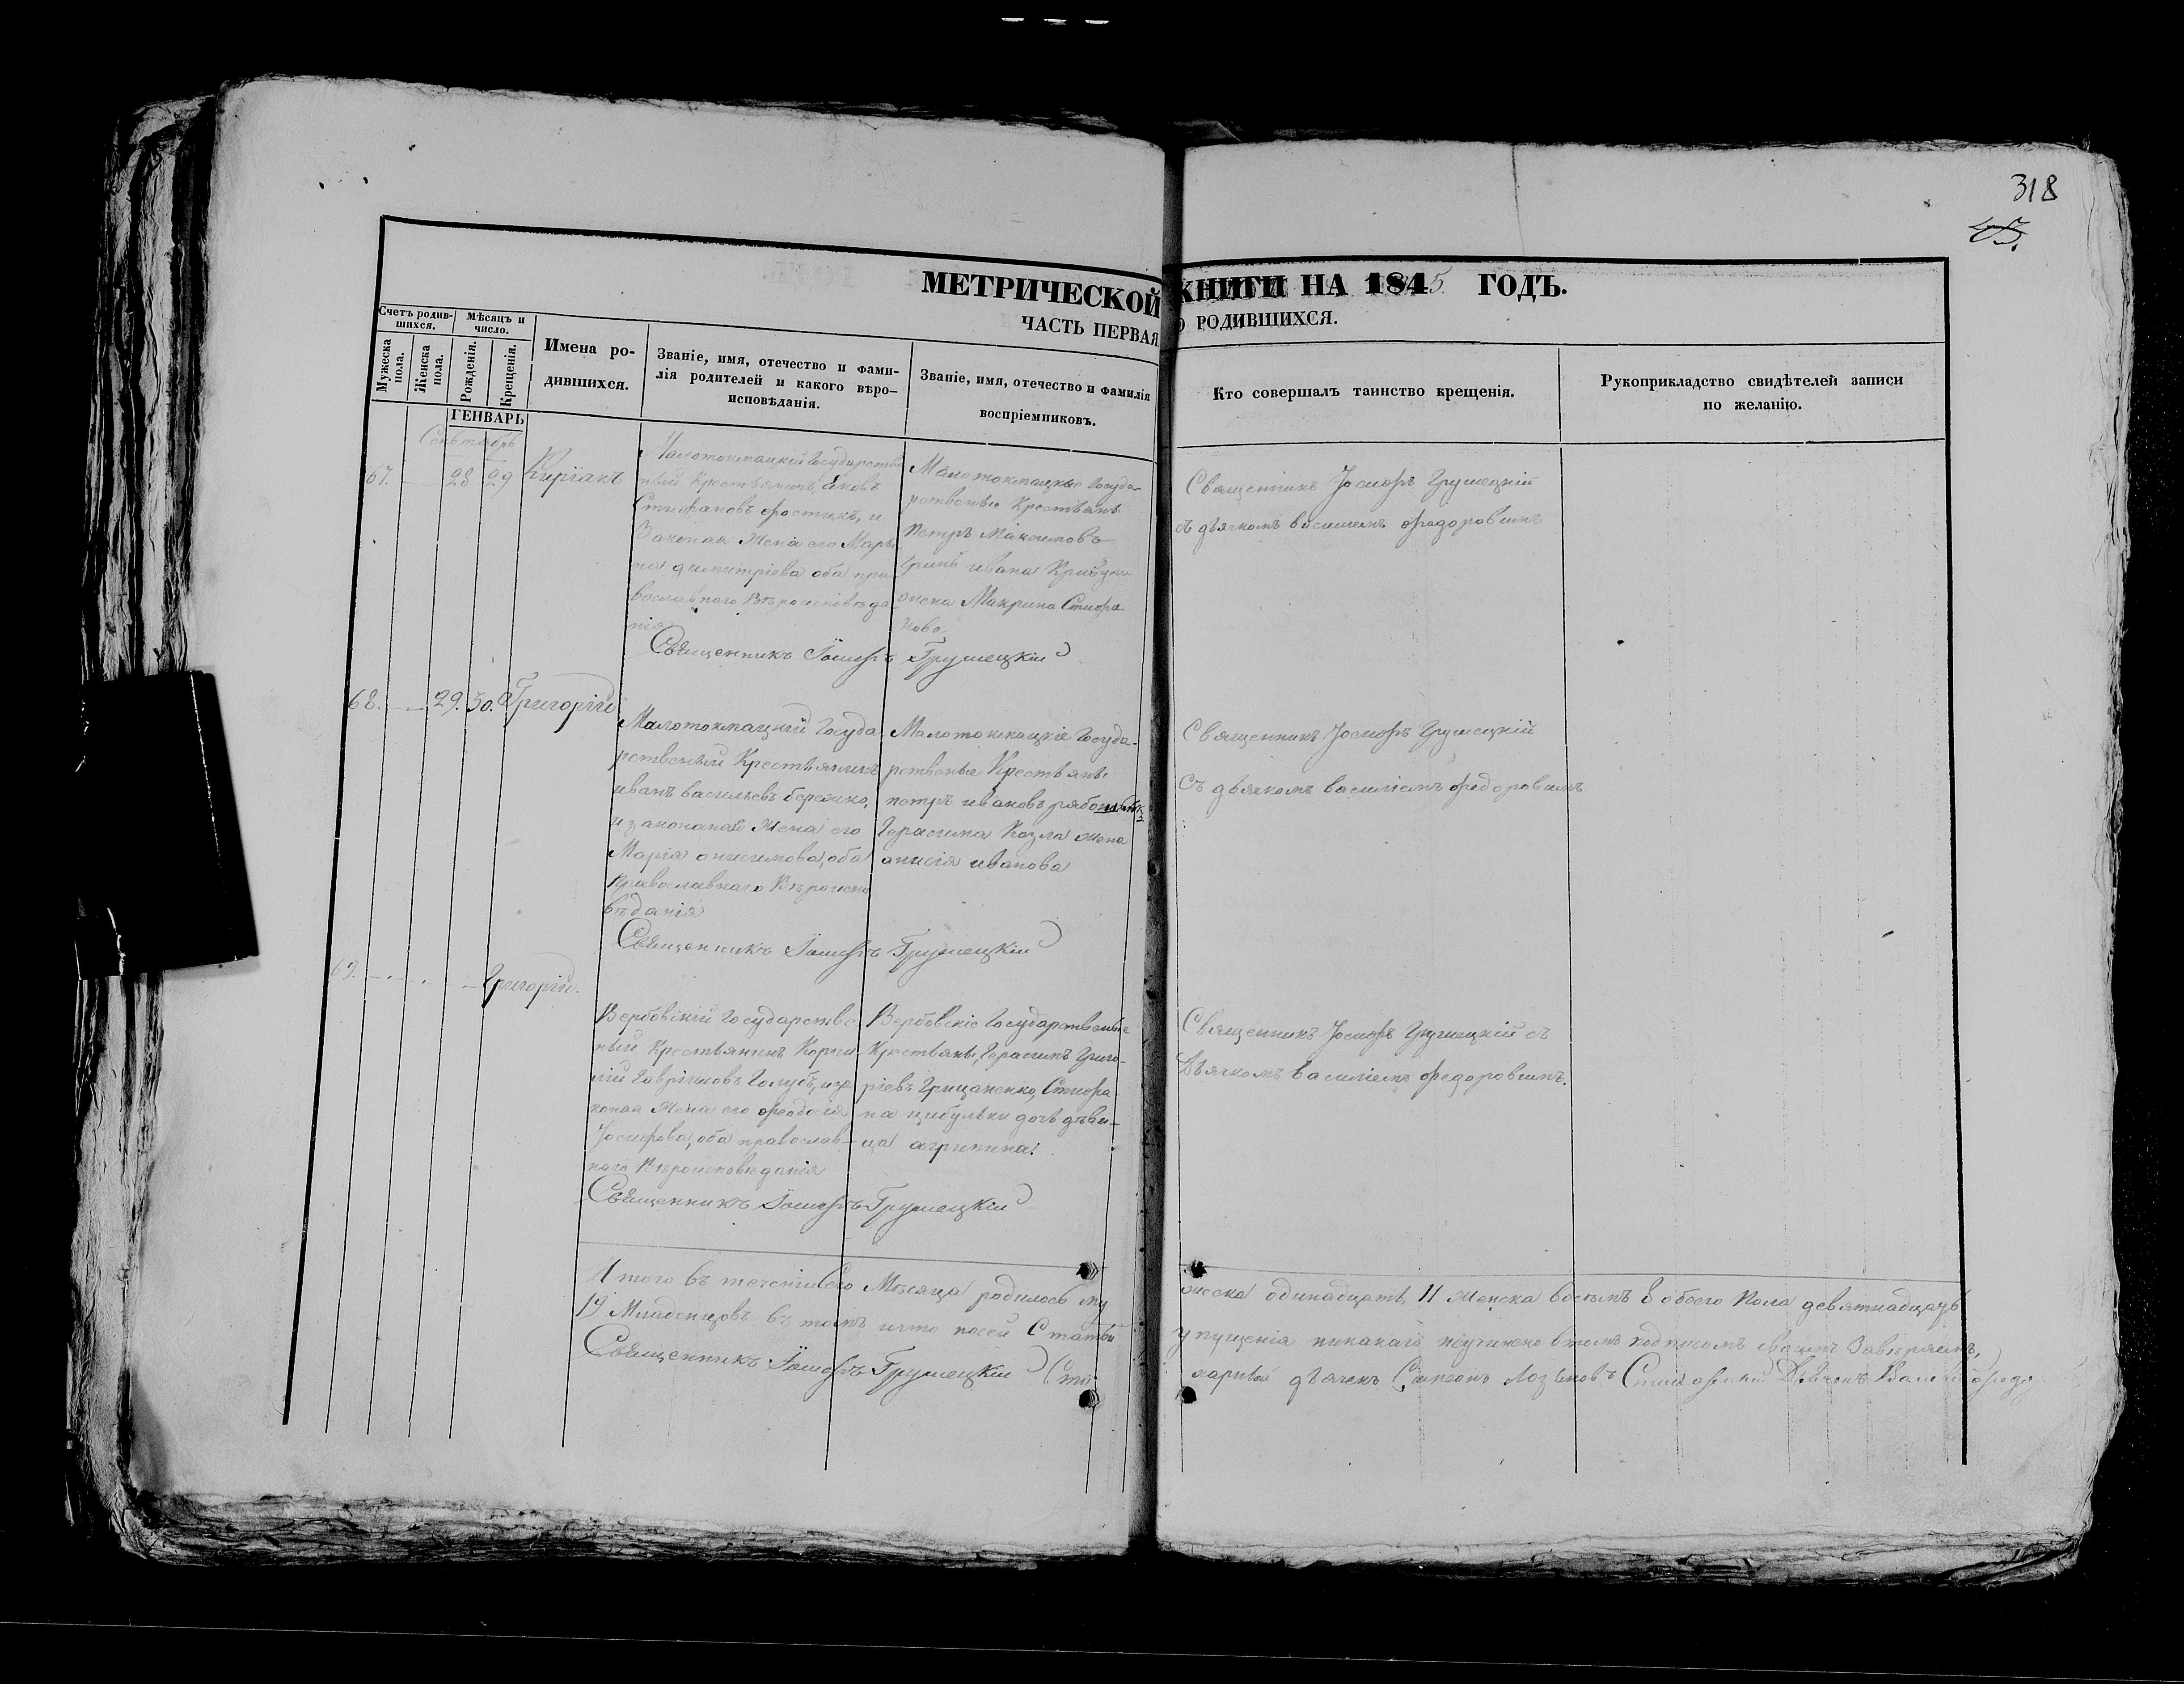 318
45.
МЕТРИЧЕСКОЙ КНИГИ НА 1845 ГОДЪ.
ЧАСТЬ ПЕРВАЯ О РОДИВШИХСЯ.
Счетъ родив-
шихся.
Мужеска
пола.
Женска
пола.
Мѣсяцъ и
число.
Рожденія.
Крещенія.
Имена ро-
дившихся.
Званіе, имя, отечество и фами-
лія родителей и какого вѣро-
исповѣданія.
Званіе, имя, отечество и фамилія
воспріемниковъ.
Кто совершалъ таинство крещенія.
Рукоприкладство свидѣтелей записи
по желанію.
ГЕНВАРЬ
Сентябрь
67. 28 29 Киріакъ
Малотокмацкій Государстве
ный Крестьянинъ Яковъ
Стефановъ фостикъ, и
Законая Жена его Мари
на димитріева оба пра
вославнаго Вѣроисповѣда
нія
Малотокмацкіе Госуда-
рственые Крестьяне
Петръ Максимовъ
ивана
жена Макрина Стефа
нова
Священникъ Іосифъ Грушецкій
съ дьячкомъ василіемъ федоровимъ
Священникъ Іосифъ Грушецкій
68. 29. 30. Григорій
Малотокмацкій Госуда
рственый Крестьянинъ
иванъ васильевъ бережко,
и законая Жена его
Марія онисимова, оба
Православнаго Вѣроиспо
вѣданія
Малотокмацкіе Госуда-
рственые Крестьяне
петръ ивановъ
Герасима Козла жена
анисія иванова
Священникъ Іосифъ Грушецкій
Съ дьячкомъ василіемъ федоровимъ
Священникъ Іосифъ Грушецкій
69. Григорій.
Вербовскій Государстве
ный Крестьянинъ Корни
лій Гавріиловъ Голубъ, иза
коная Жена его феодосія
Іосифова, оба православ-
наго Вѣроисповѣданія
Вербовскіе Государственые
Крестьяне, Герасимъ Григо-
ріевъ Грицаненко, Стефа-
на цибульки дочь дѣви-
ца агрипина.
Священникъ Іосифъ Грушецкій съ
Дьячкомъ василіемъ федоровимъ.
Священникъ Іосифъ Грушецкій
Итого въ теченіи Сего Мѣсяца родилось му жеска одинадцать 11 женска восемъ 8 обоего Пола девятнадцать
19 Младенцовъ въ томъ что посей Статьи упущенія никакаго неучинено втомъ подписомъ своимъ Завѣряемъ,
Священникъ Іосифъ Грушецкій дьячекъ Симеонъ